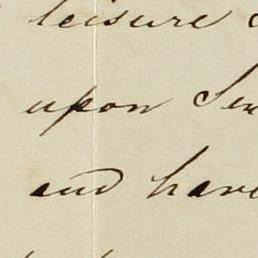 leisure
upon
and have